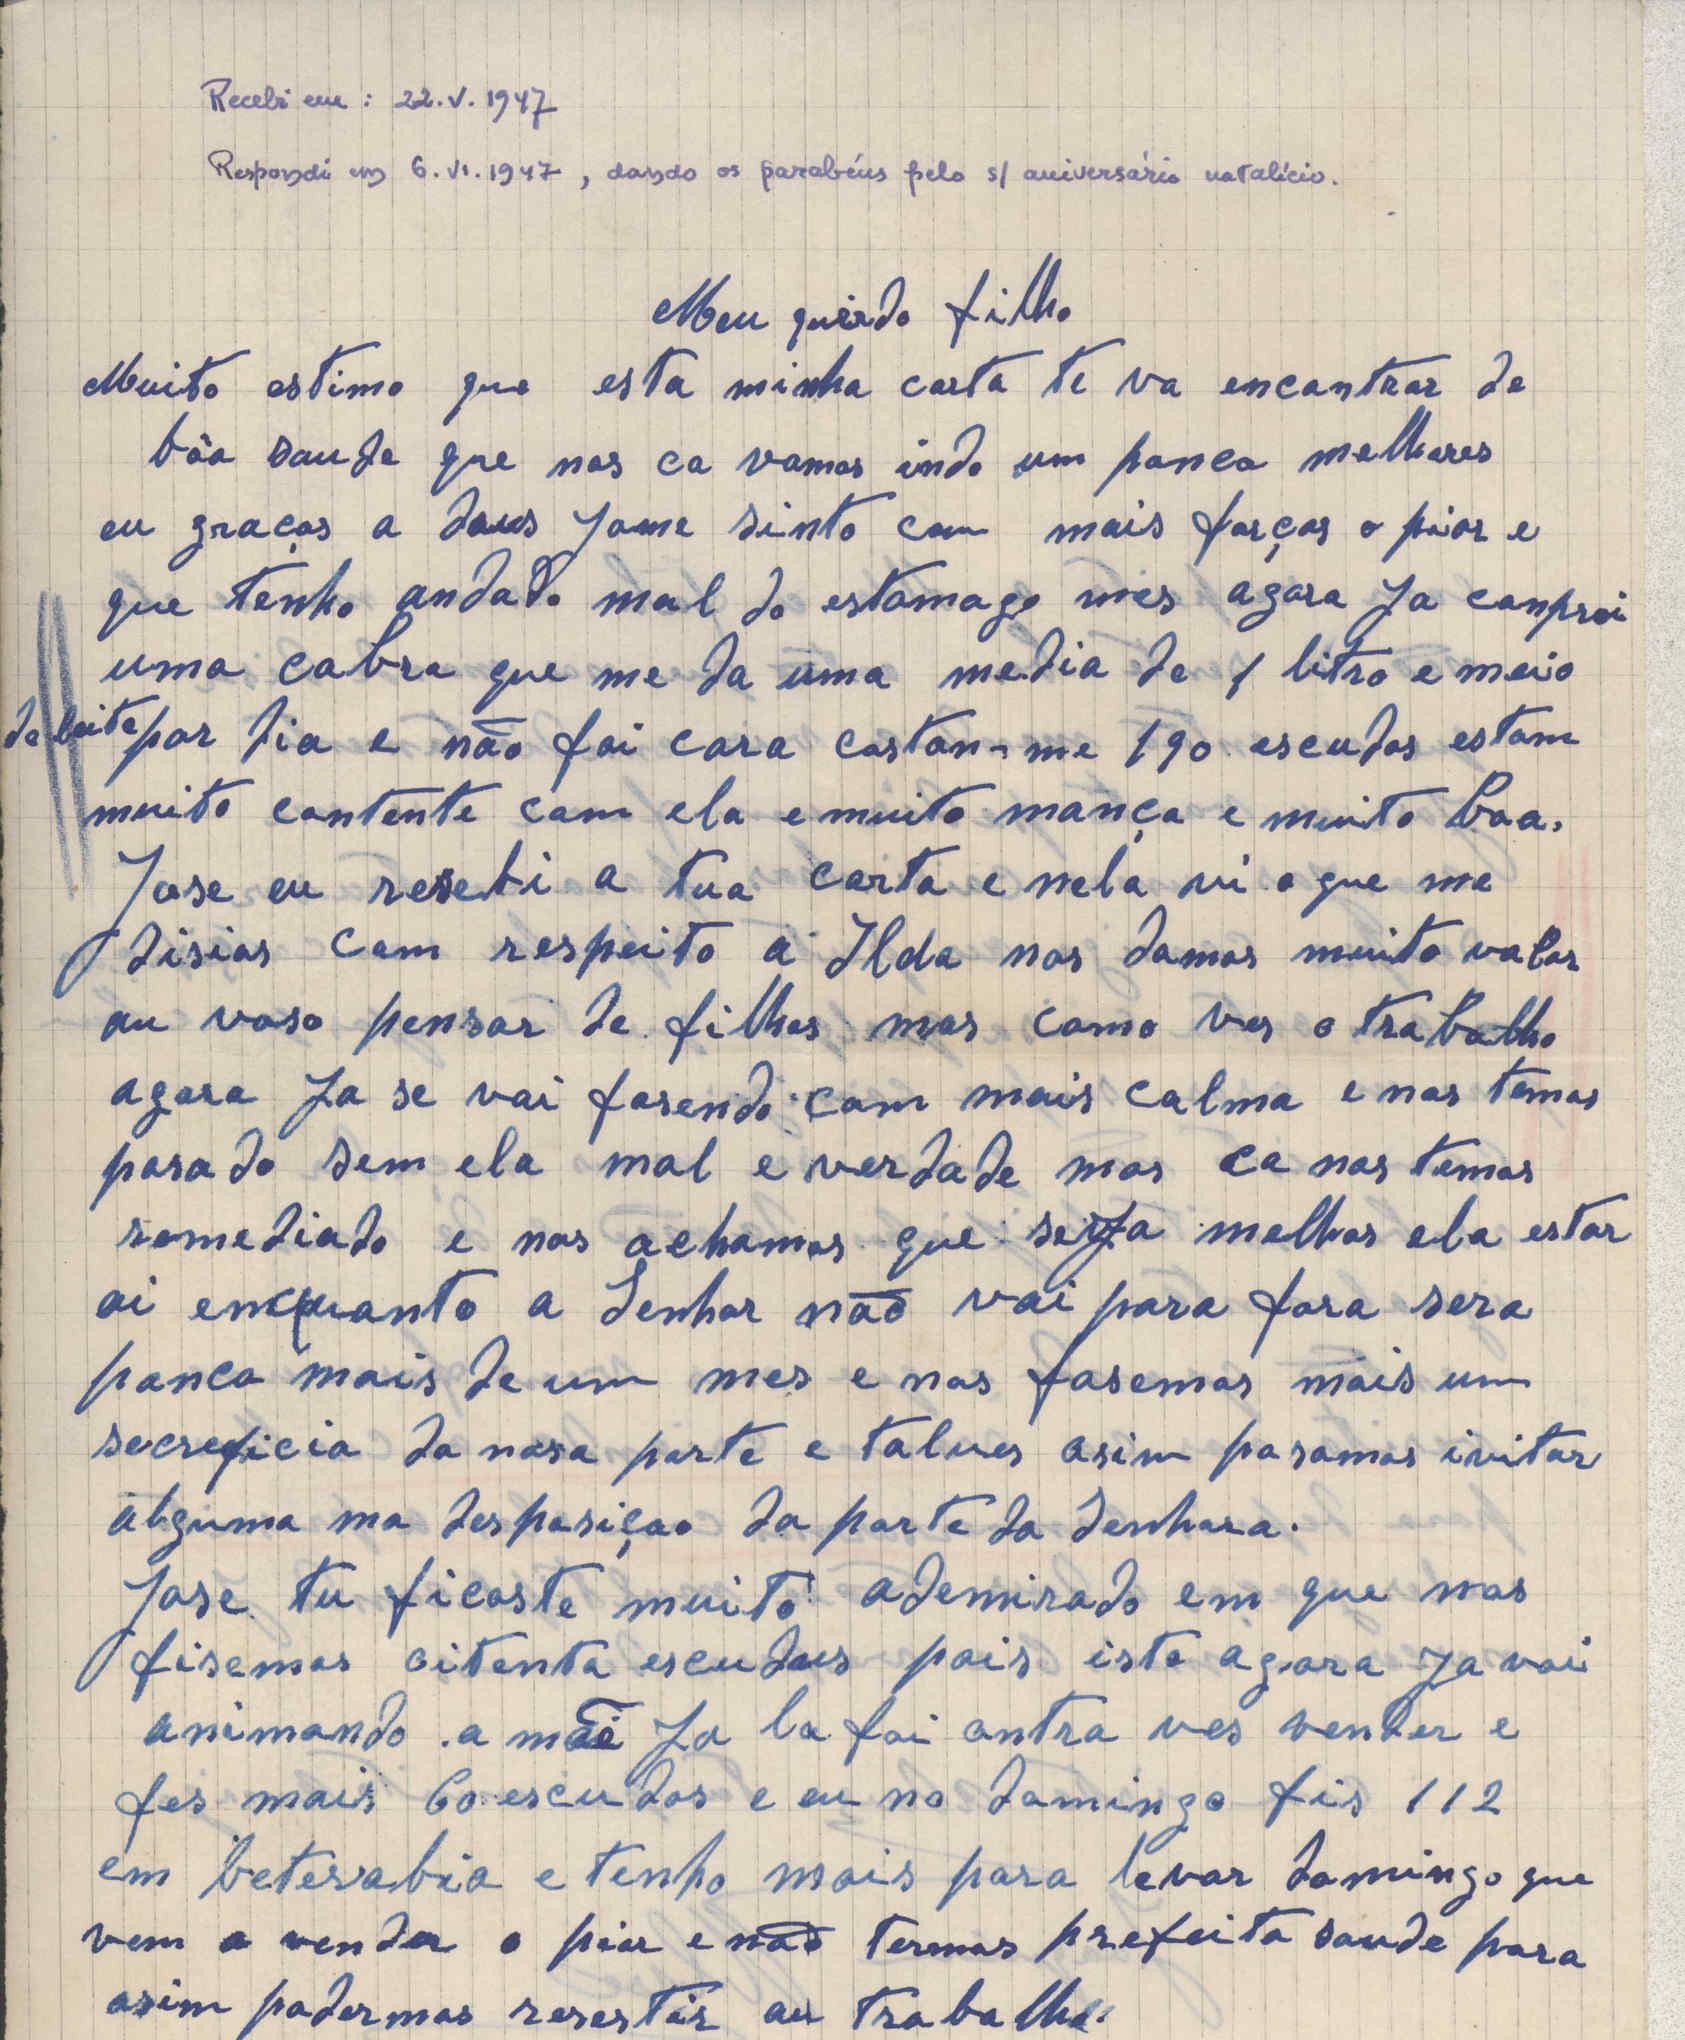 Recebi em : 22.V.1947
Respondi em 6.VI.1947, dando os parabéns pelo s/ aniversário natalício.
Meu querido filho
Muito estimo que esta minha carta te va encontrar de
bôa saude que nos ca vamos indo um pouco melhores
eu graças a deus Jame sinto com mais forças o pior e
que tenho andado mal do estomago mes agora Ja conprei
uma cabra que me da uma media de 1 litro e meio
de leite por dia e não foi cara costou-me 190 escudos estom
muito contente com ela e muito mança e muito boa.
Jose eu resebi a tua carta e nela vi o que me
disias com respeito a Ilda nos damos muito valor
au voso pensar de filhos mas como ves o trabalho
agora Ja se vai fasendo com mais calma e nos temos
pasado sem ela mal e verdade mas ca nos temos
remediado e nos achamos que seja melhor ela estar
ai enquanto a Senhor não vai para fora sera
pouco mais de um mes e nos fasemos mais um
secreficio da nosa parte e talves asim posamos ivitar
alguma ma desposiçao da parte da Senhora.
Jose tu ficaste muito ademirado em que nos
fisemos oitenta escudos pois isto agora Ja vai
animando . a mãe Ja la foi outra ves vender e
fes mais 60 escudos e eu no domingo fis 112
em beterabia e tenho mais para levar domingo que
vem a vender o pior e não termos prefeita saude para
asim podermos resestir au trabalho.